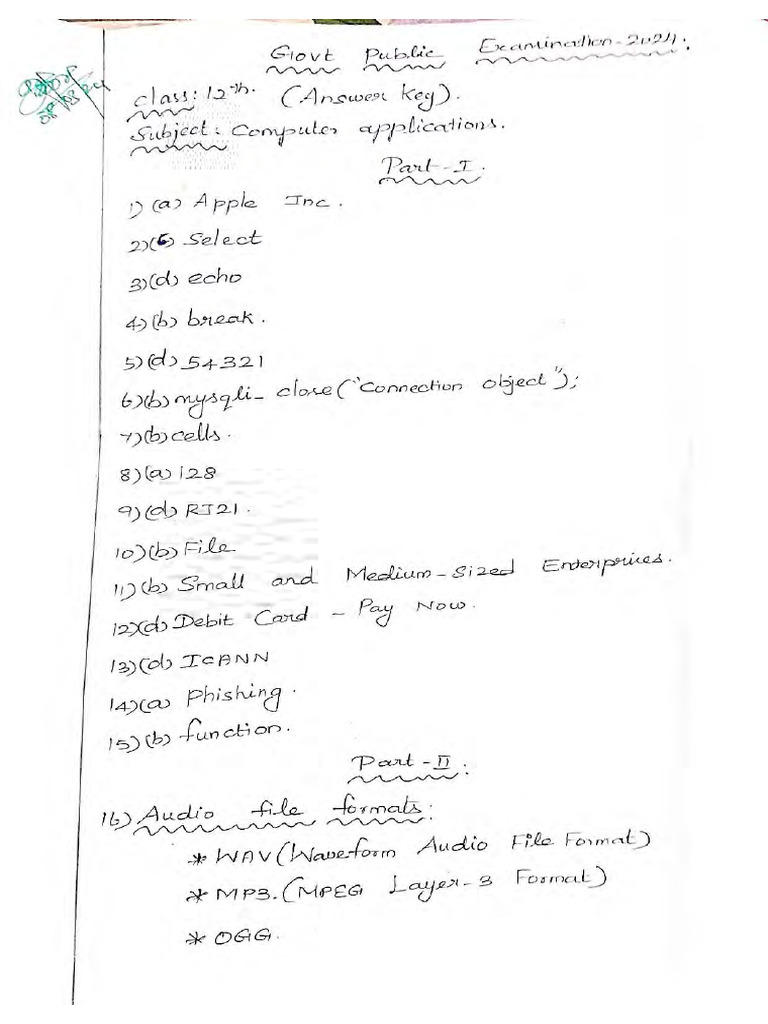 Govt Public Examination-2024.
08/03/24
Class: 12th. (Answer key).
Subject: Computer applications.
Part-I.
1) (a) Apple Inc.
2) (c) Select
3) (d) echo
4) (b) break.
5) (d) 54321
6) (b) mysqli_close("Connection object");
7) (b) cells.
8) (a) 128
9) (d) RJ21.
10) (b) File
11) (b) Small and Medium-Sized Enterprices.
12) (d) Debit Card - Pay Now.
13) (d) ICANN
14) (a) Phishing.
15) (b) function.
Part-II.
16) Audio file formats:
* WAV (Waveform Audio File Format)
* MP3. (MPEG Layer-3 Format)
* OGG.